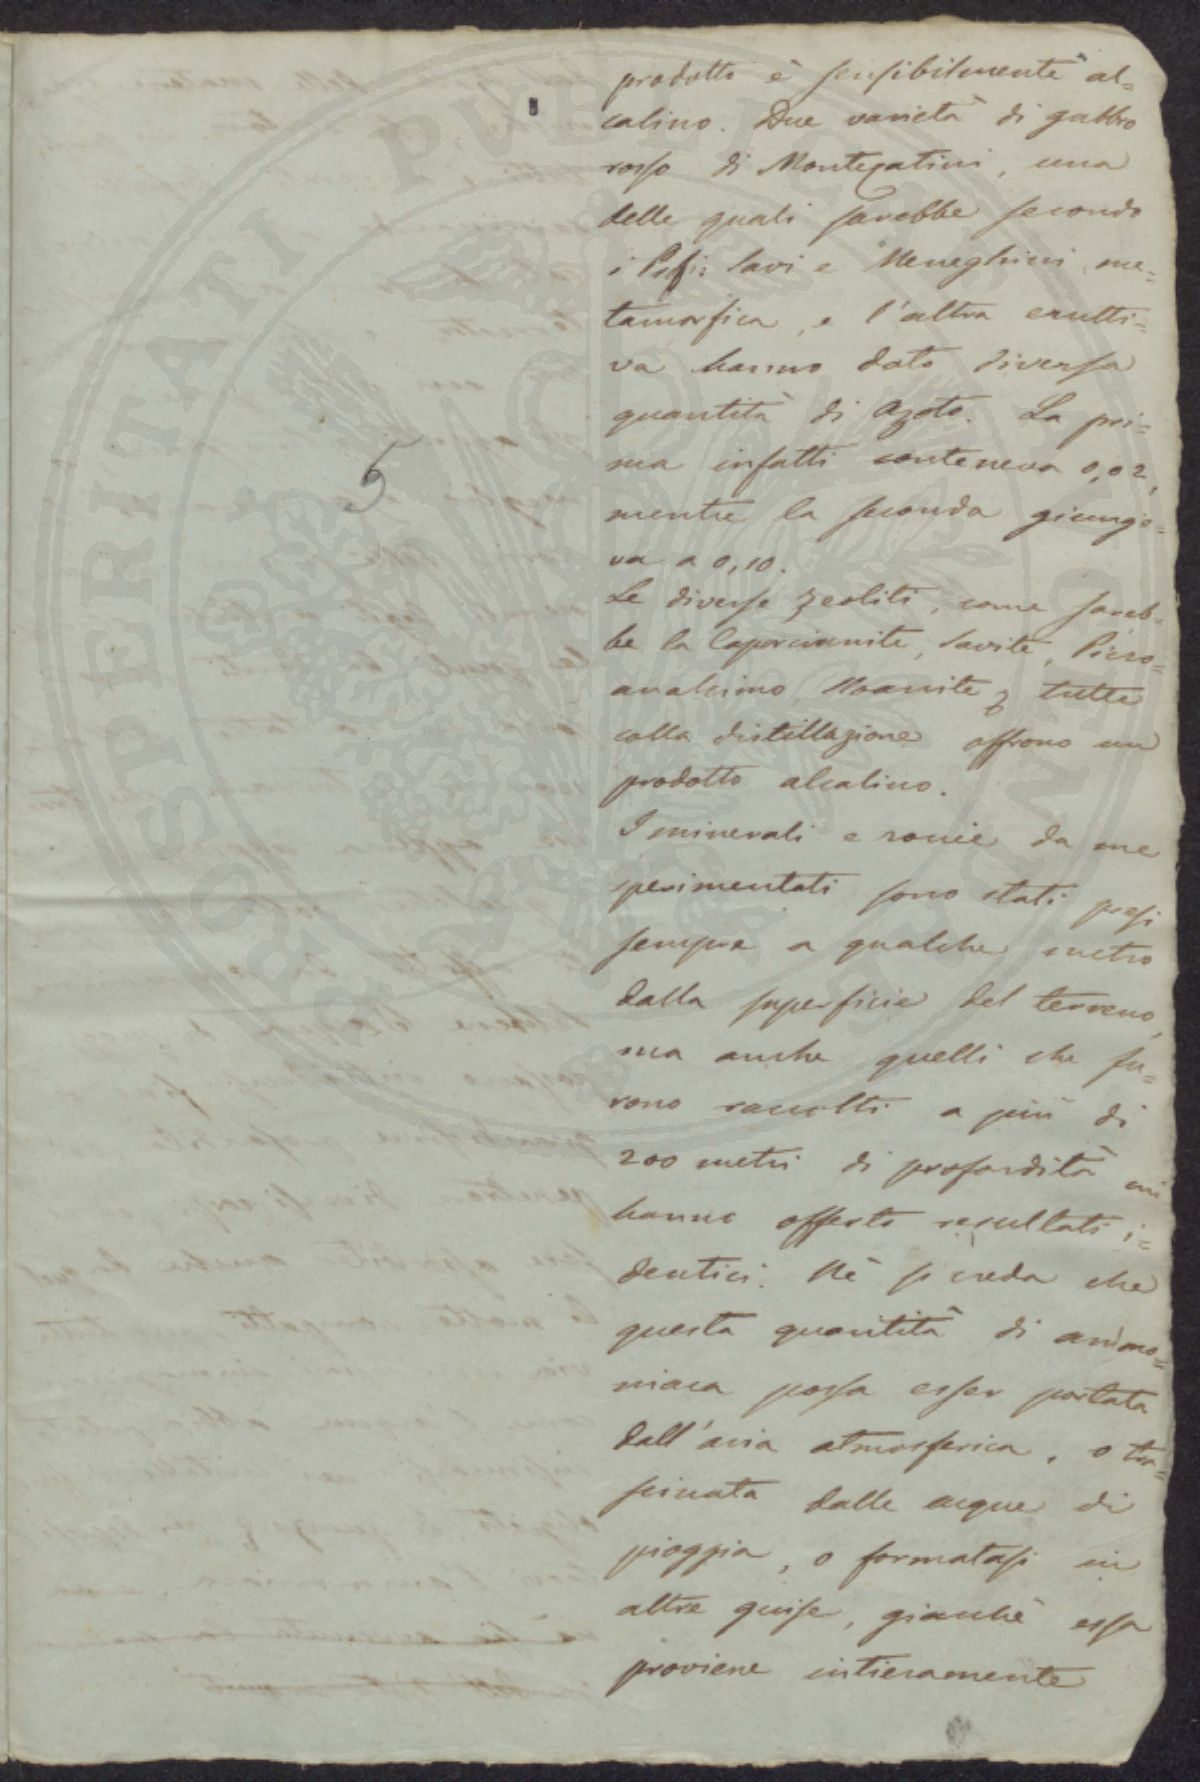 prodotto è sensibilmente al=
calino. Due varietà di gabbro
rosso di Montecatini, una
delle quali sarebbe secondo
i Prof.i Savi e Meneghini me=
tamorfica, e l'altra erutti=
va hanno dato diversa
quantità di Azoto. La pri=
ma infatti conteneva 0,02,
mentre la seconda giunge=
va a 0,10.
Le diverse zeoliti, come sareb=
be la Caporcianite, Savite, Picro=
analcimo, tutte
colla distillazione offrono un
prodotto alcalino.
I minerali e roccie da me
sperimentati sono stati presi
sempre a qualche metro
dalla superficie del terreno,
ma anche quelli che fu=
rono raccolti a più di
200 metri di profondità mi
hanno offerto resultati i=
dentici. Nè si creda che
questa quantità di ammo=
niaca possa esser portata
dall'aria atmosferica, o tra=
scinata dalle acque di
pioggia, o formatasi in
altre guise, gianchè essa
proviene intieramente
5
PROSPERITATI PUBLICAE AUGENDAE